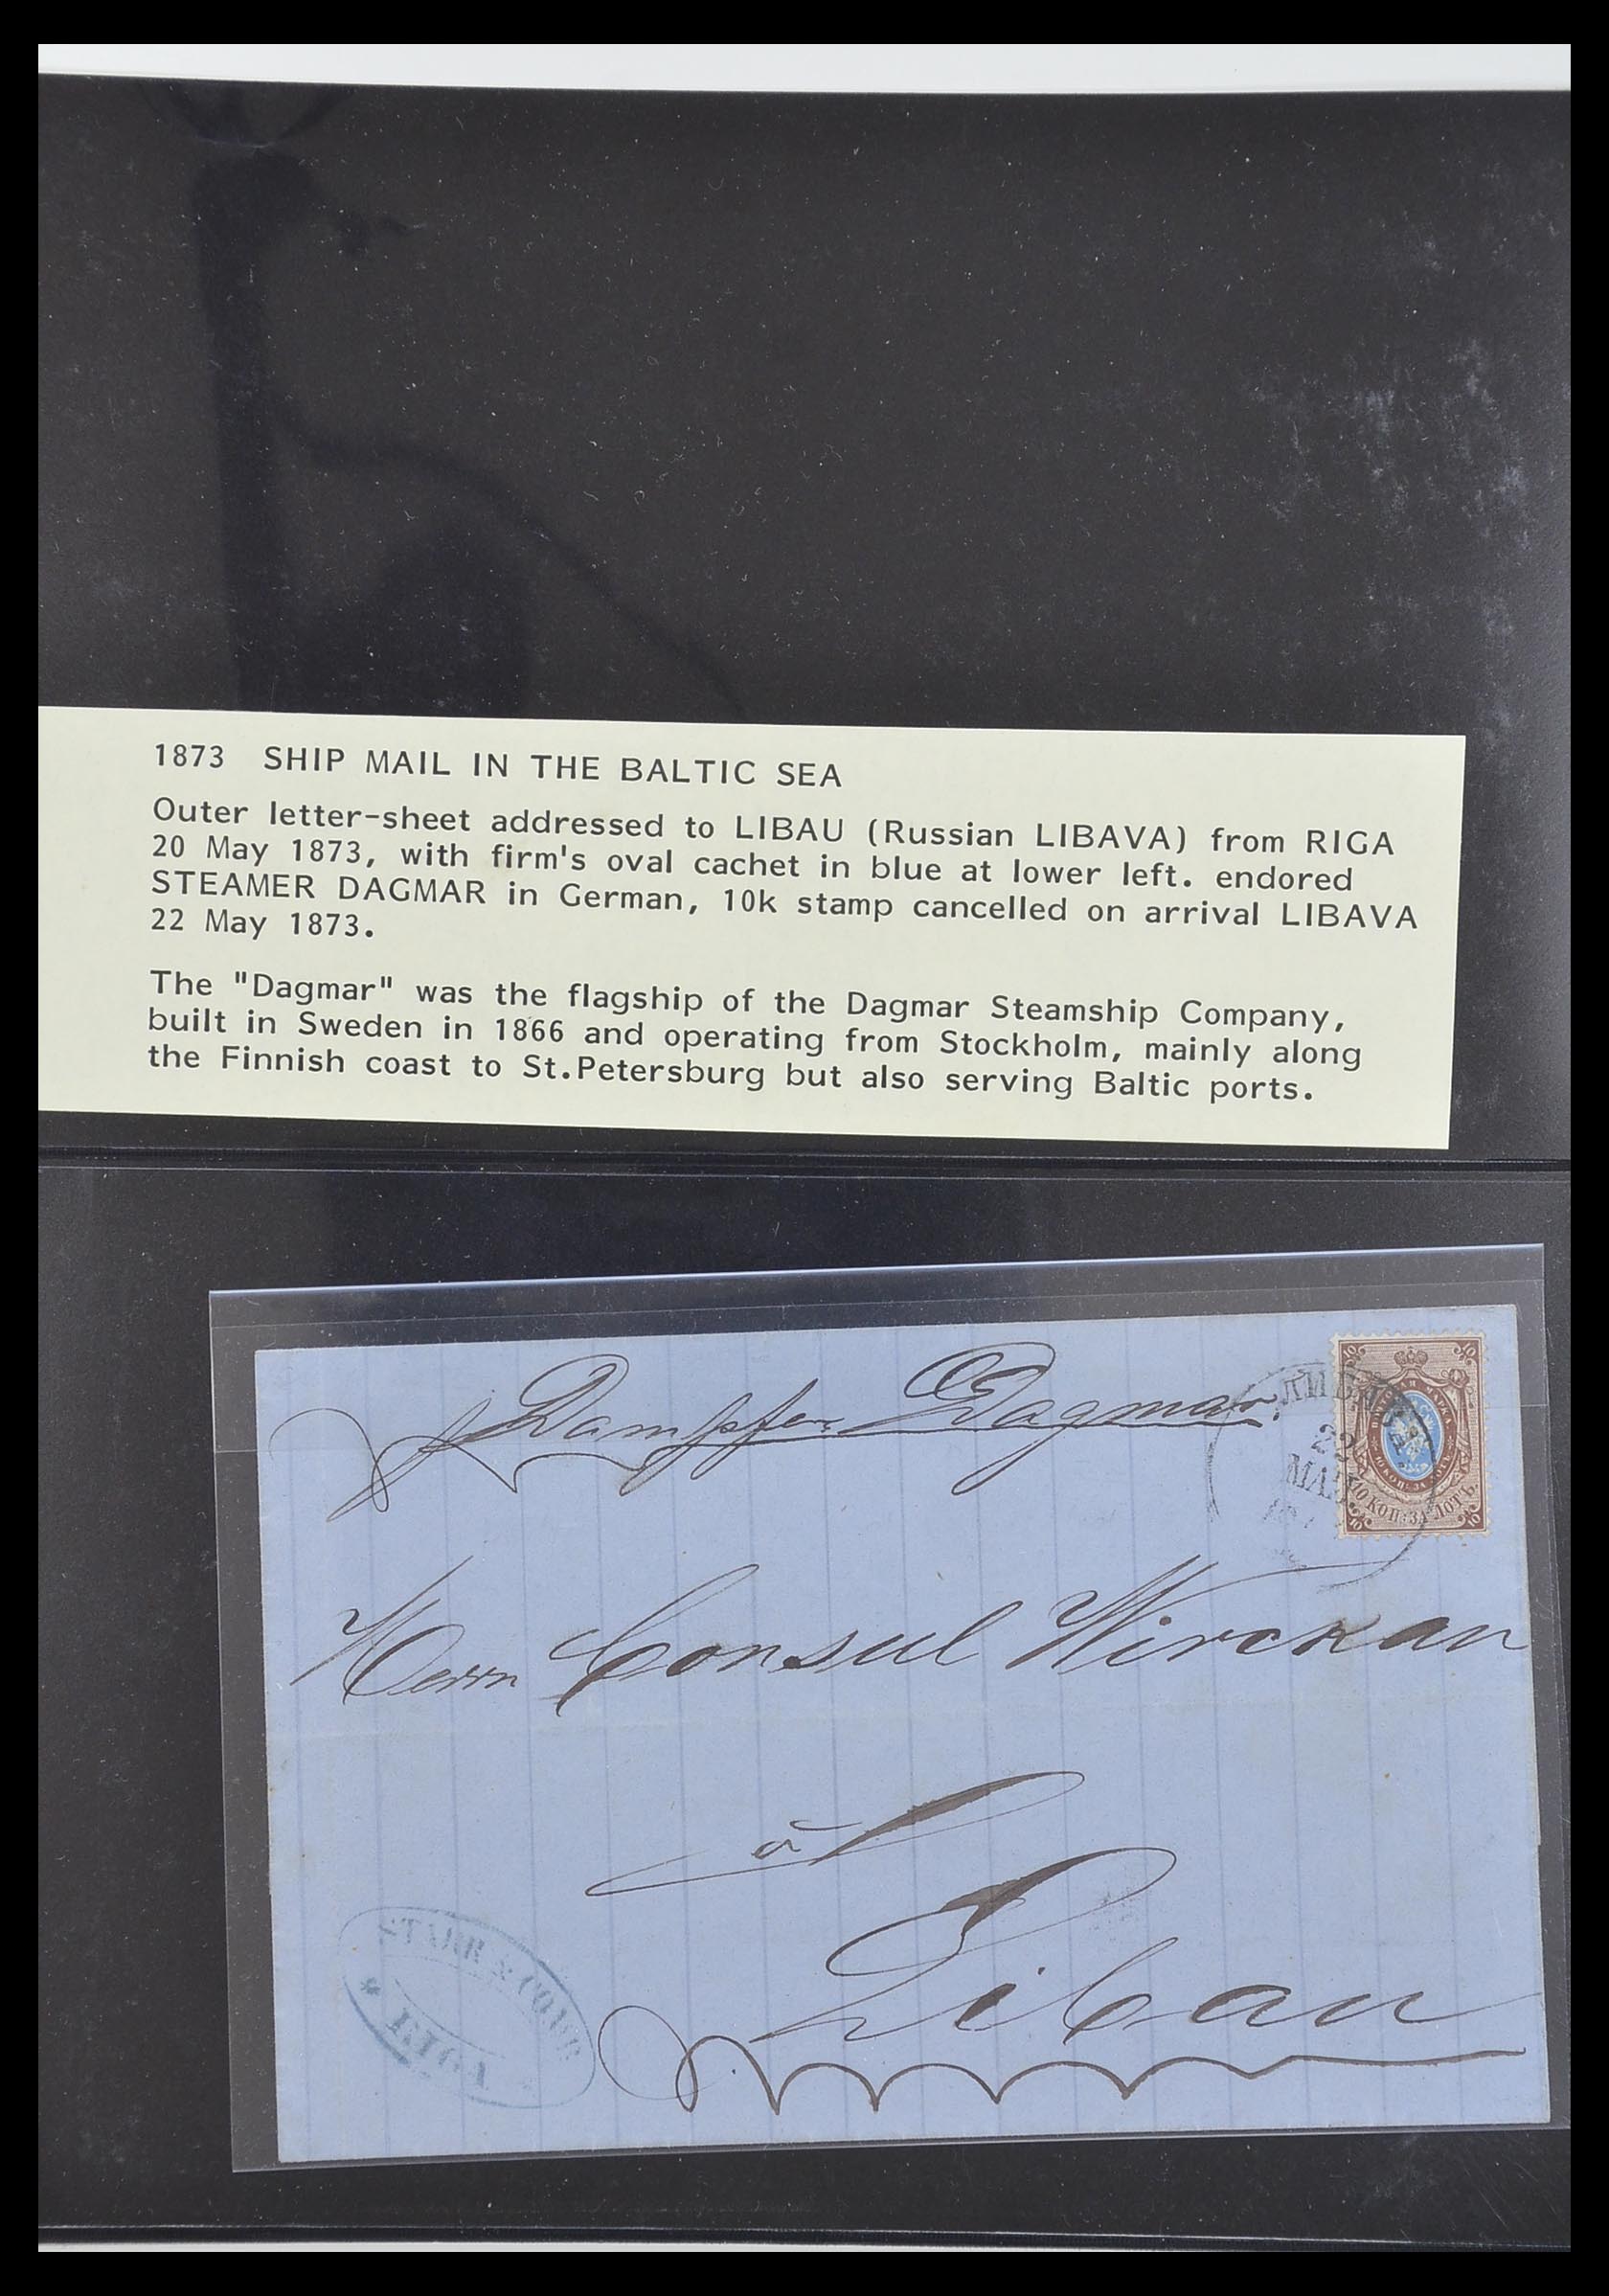 1873 SHIP MAIL IN THE BALTIC SEA
Outer letter-sheet addressed to LIBAU (Russian LIBAVA) from RIGA
20 May 1873, with firm's oval cachet in blue at lower left. endored
STEAMER DAGMAR in German, 10k stamp cancelled on arrival LIBAVA
22 May 1873.
The "Dagmar" was the flagship of the Dagmar Steamship Company,
built in Sweden in 1866 and operating from Stockholm, mainly along
the Finnish coast to St.Petersburg but also serving Baltic ports.
Dampfer Dagmar
ЛИБАВА
22
МАЯ
10 10
10 КОП: ЗА ЛОТЪ
10 10
Herrn Consul Wirckau
à
Libau
STARR & COMP
* RIGA